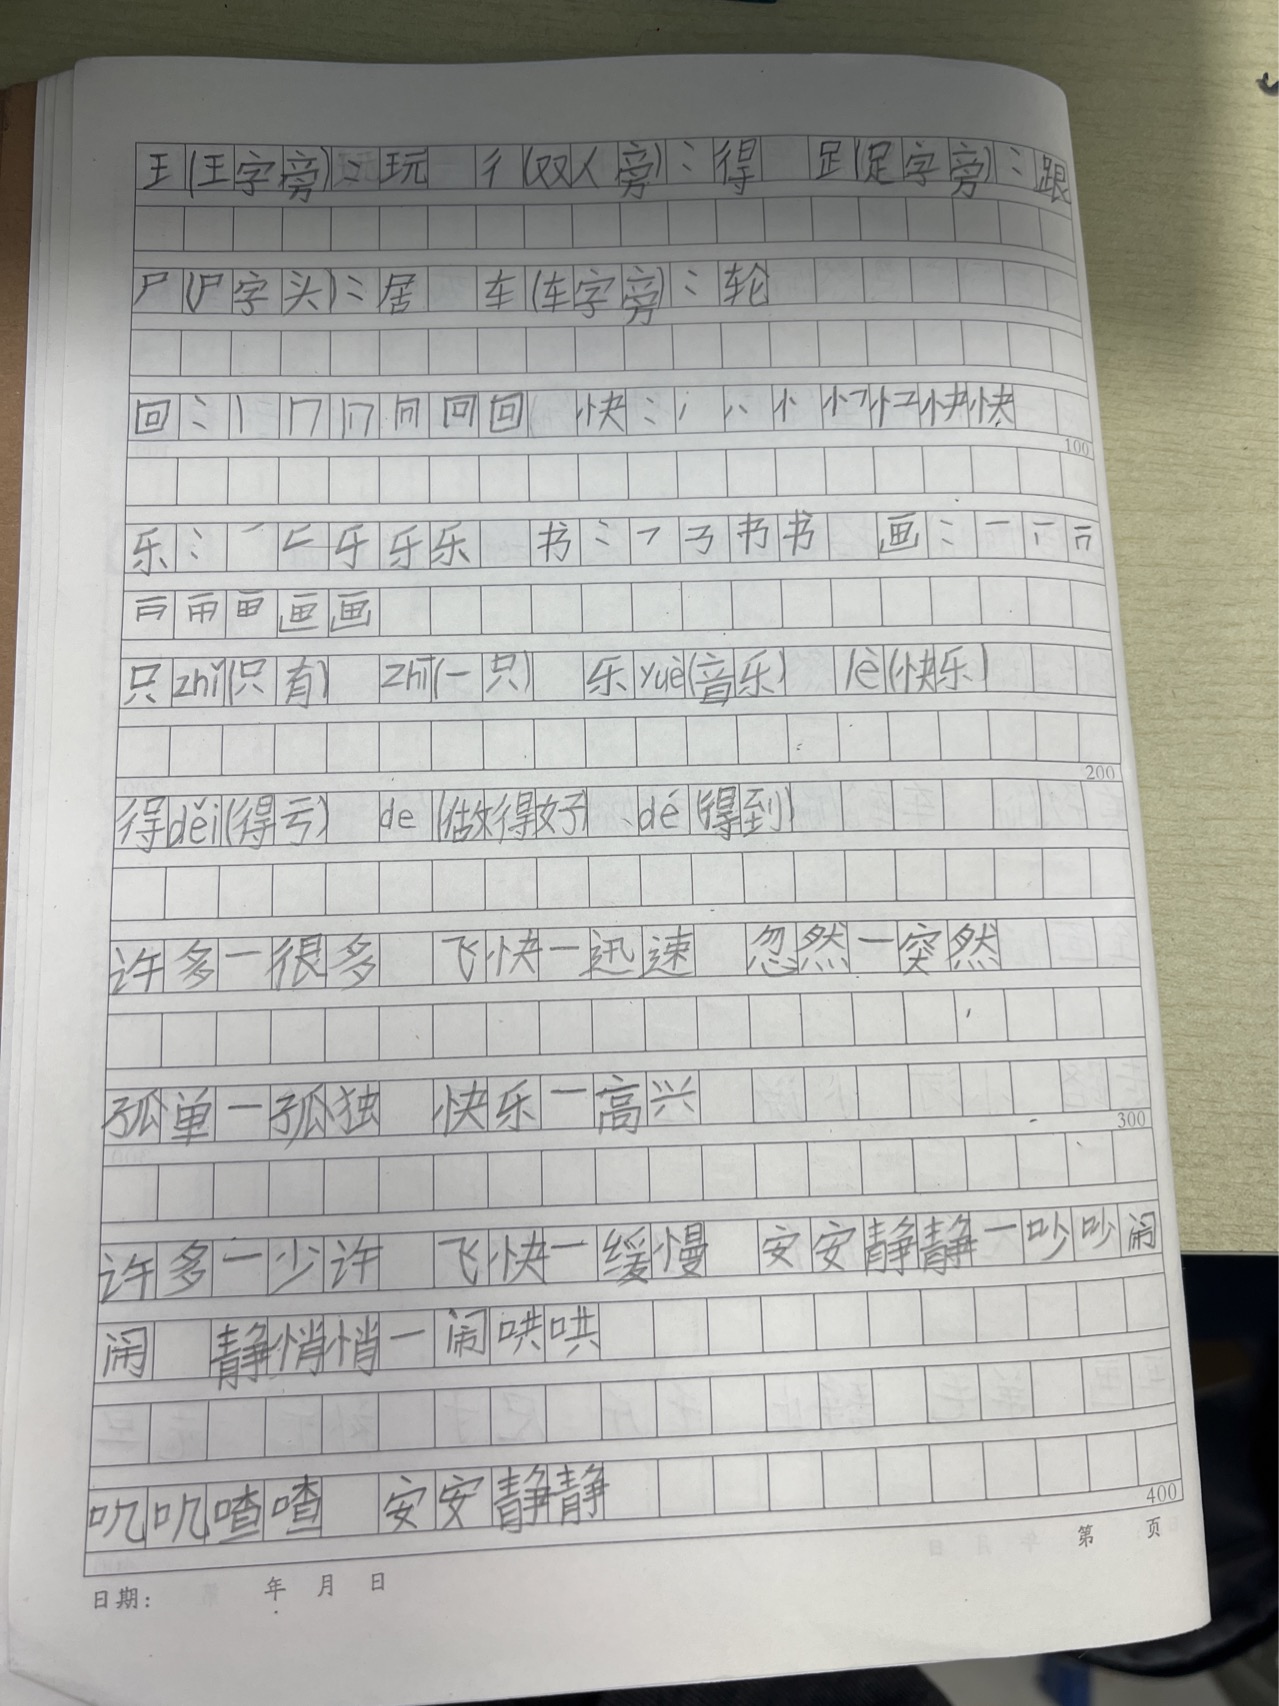 王(王字旁):玩 彳(双人旁):得 𧾷(足字旁):跟
尸(尸字头):居 车(车字旁):轮
回:丨冂回回 快:快
100
乐:一乐 书:乛书书 画:一丆
画画
只zhǐ(只有) zhī(一只) 乐yuè(音乐) lè(快乐)
200
得děi(得亏) de(做得好) dé(得到)
许多一很多 飞快一迅速 忽然一突然
孤单一孤独 快乐一高兴
300
许多一少许 飞快一缓慢 安安静静一吵吵闹
闹 静悄悄一闹哄哄
叽叽喳喳 安安静静
400
第 页
日期: 年 月 日